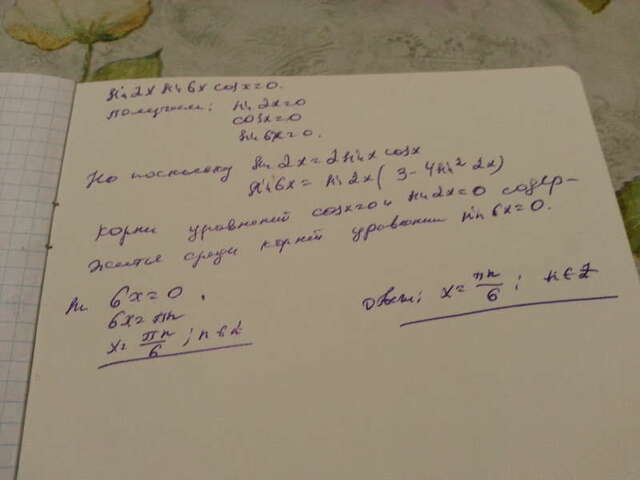 sin 2x sin 6x cos x = 0.
получаем: sin 2x = 0
cos x = 0
sin 6x = 0.
Но поскольку sin 2x = 2 sin x cos x
sin 6x = sin 2x (3 - 4 sin² 2x)
корни уравнений cos x = 0 и sin 2x = 0 содер-
жатся среди корней уравнения sin 6x = 0.
sin 6x = 0.
6x = πn
x = πn/6 ; n ∈ Z
ответ: x = πn/6 ; n ∈ Z